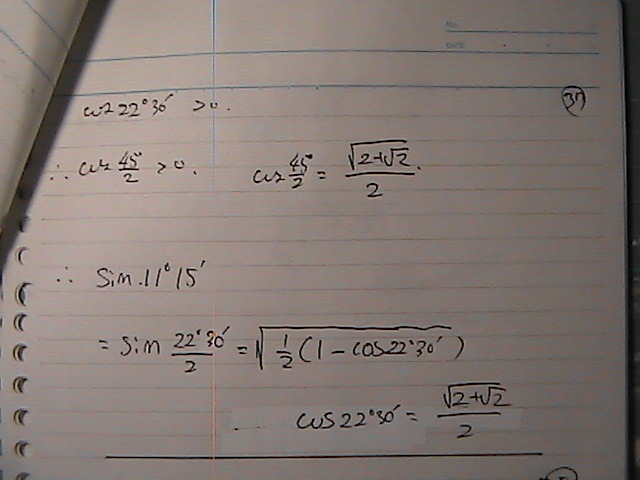 No.
DATE
37
cos 22°30′ > 0.
∴ cos 45°/2 > 0. cos 45°/2 = √(2+√2)/2.
∴ Sin 11°15′
= Sin 22°30′/2 = √(1/2 (1 - cos 22°30′))
cos 22°30′ = √(2+√2)/2